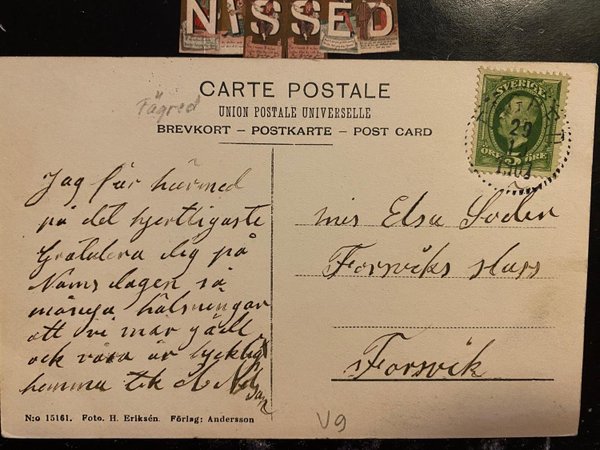 NISSED
CARTE POSTALE
Fägred
UNION POSTALE UNIVERSELLE
BREVKORT – POSTKARTE – POST CARD
SVERIGE
ÖRE 5 ÖRE
29
Jag får härmed
på det hjertligaste
Gratulera dig på
Namsdagen så
många hälsningar
att vi mår
och våra är lycklig
hemma
mis Elsa Soder
Forsviks slass
Forsvik
N:o 15161. Foto. H. Eriksén. Förlag: Andersson
V9